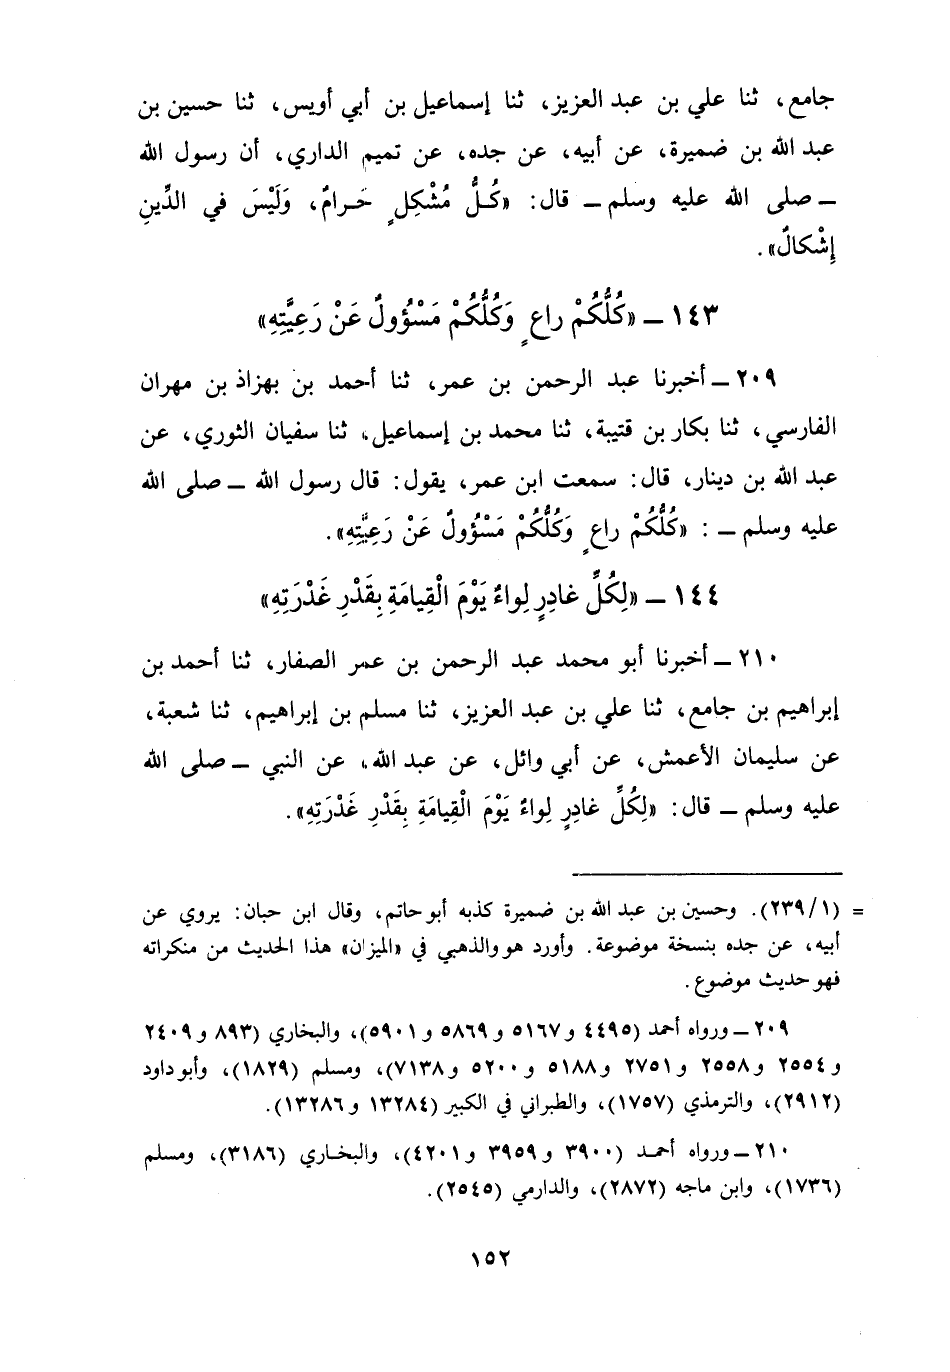 جامع، ثنا علي بن عبد العزيز، ثنا إسماعيل بن أبي أويس، ثنا حسين بن
عبد الله بن ضميرة، عن أبيه، عن جده، عن تميم الداري، أن رسول الله
ــ صلى الله عليه وسلم ــ قال: «كُلُّ مُشْكِلٍ حَرامٌ، وَلَيْسَ في الدِّينِ
إِشْكالٌ».
١٤٣ ــ «كُلُّكُمْ راعٍ وَكُلُّكُمْ مَسْؤُولٌ عَنْ رَعِيَّتِهِ»
٢٠٩ ــ أخبرنا عبد الرحمن بن عمر، ثنا أحمد بن بهزاذ بن مهران
الفارسي، ثنا بكار بن قتيبة، ثنا محمد بن إسماعيل، ثنا سفيان الثوري، عن
عبد الله بن دينار، قال: سمعت ابن عمر، يقول: قال رسول الله ــ صلى الله
عليه وسلم ــ : «كُلُّكُمْ راعٍ وَكُلُّكُمْ مَسْؤُولٌ عَنْ رَعِيَّتِهِ».
١٤٤ ــ «لِكُلِّ غادِرٍ لِواءٌ يَوْمَ الْقِيامَةِ بِقَدْرِ غَدْرَتِهِ»
٢١٠ ــ أخبرنا أبو محمد عبد الرحمن بن عمر الصفار، ثنا أحمد بن
إبراهيم بن جامع، ثنا علي بن عبد العزيز، ثنا مسلم بن إبراهيم، ثنا شعبة،
عن سليمان الأعمش، عن أبي وائل، عن عبد الله، عن النبي ــ صلى الله
عليه وسلم ــ قال: «لِكُلِّ غادِرٍ لِواءٌ يَوْمَ الْقِيامَةِ بِقَدْرِ غَدْرَتِهِ».
= (٢٣٩/١). وحسين بن عبد الله بن ضميرة كذبه أبو حاتم، وقال ابن حبان: يروي عن
أبيه، عن جده بنسخة موضوعة. وأورد هو والذهبي في «الميزان» هذا الحديث من منكراته
فهو حديث موضوع.
٢٠٩ ــ ورواه أحمد (٤٤٩٥ و ٥١٦٧ و ٥٨٦٩ و ٥٩٠١)، والبخاري (٨٩٣ و ٢٤٠٩
و ٢٥٥٤ و ٢٥٥٨ و ٢٧٥١ و ٥١٨٨ و ٥٢٠٠ و ٧١٣٨)، ومسلم (١٨٢٩)، وأبو داود
(٢٩١٢)، والترمذي (١٧٥٧)، والطبراني في الكبير (١٣٢٨٤ و ١٣٢٨٦).
٢١٠ ــ ورواه أحمد (٣٩٠٠ و ٣٩٥٩ و ٤٢٠١)، والبخاري (٣١٨٦)، ومسلم
(١٧٣٦)، وابن ماجه (٢٨٧٢)، والدارمي (٢٥٤٥).
١٥٢